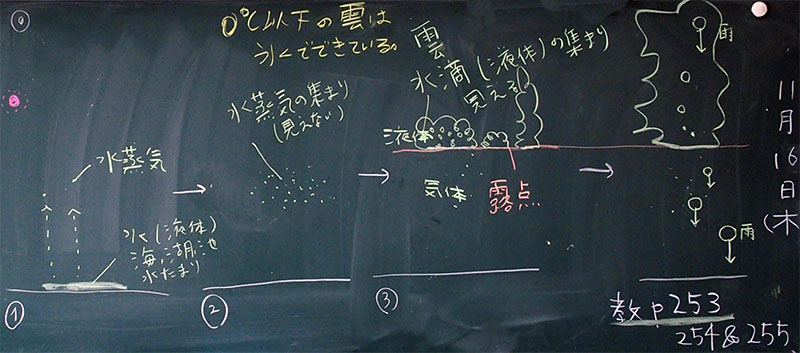 0℃以下の雲は
氷でできている。
水蒸気
水(液体)
海、湖、池
水たまり
①
水蒸気の集まり
(見えない)
②
雲
水滴(液体)の集まり
見える
液体
気体
露点
③
雨
雨
教p253
254&255
11月16日(木